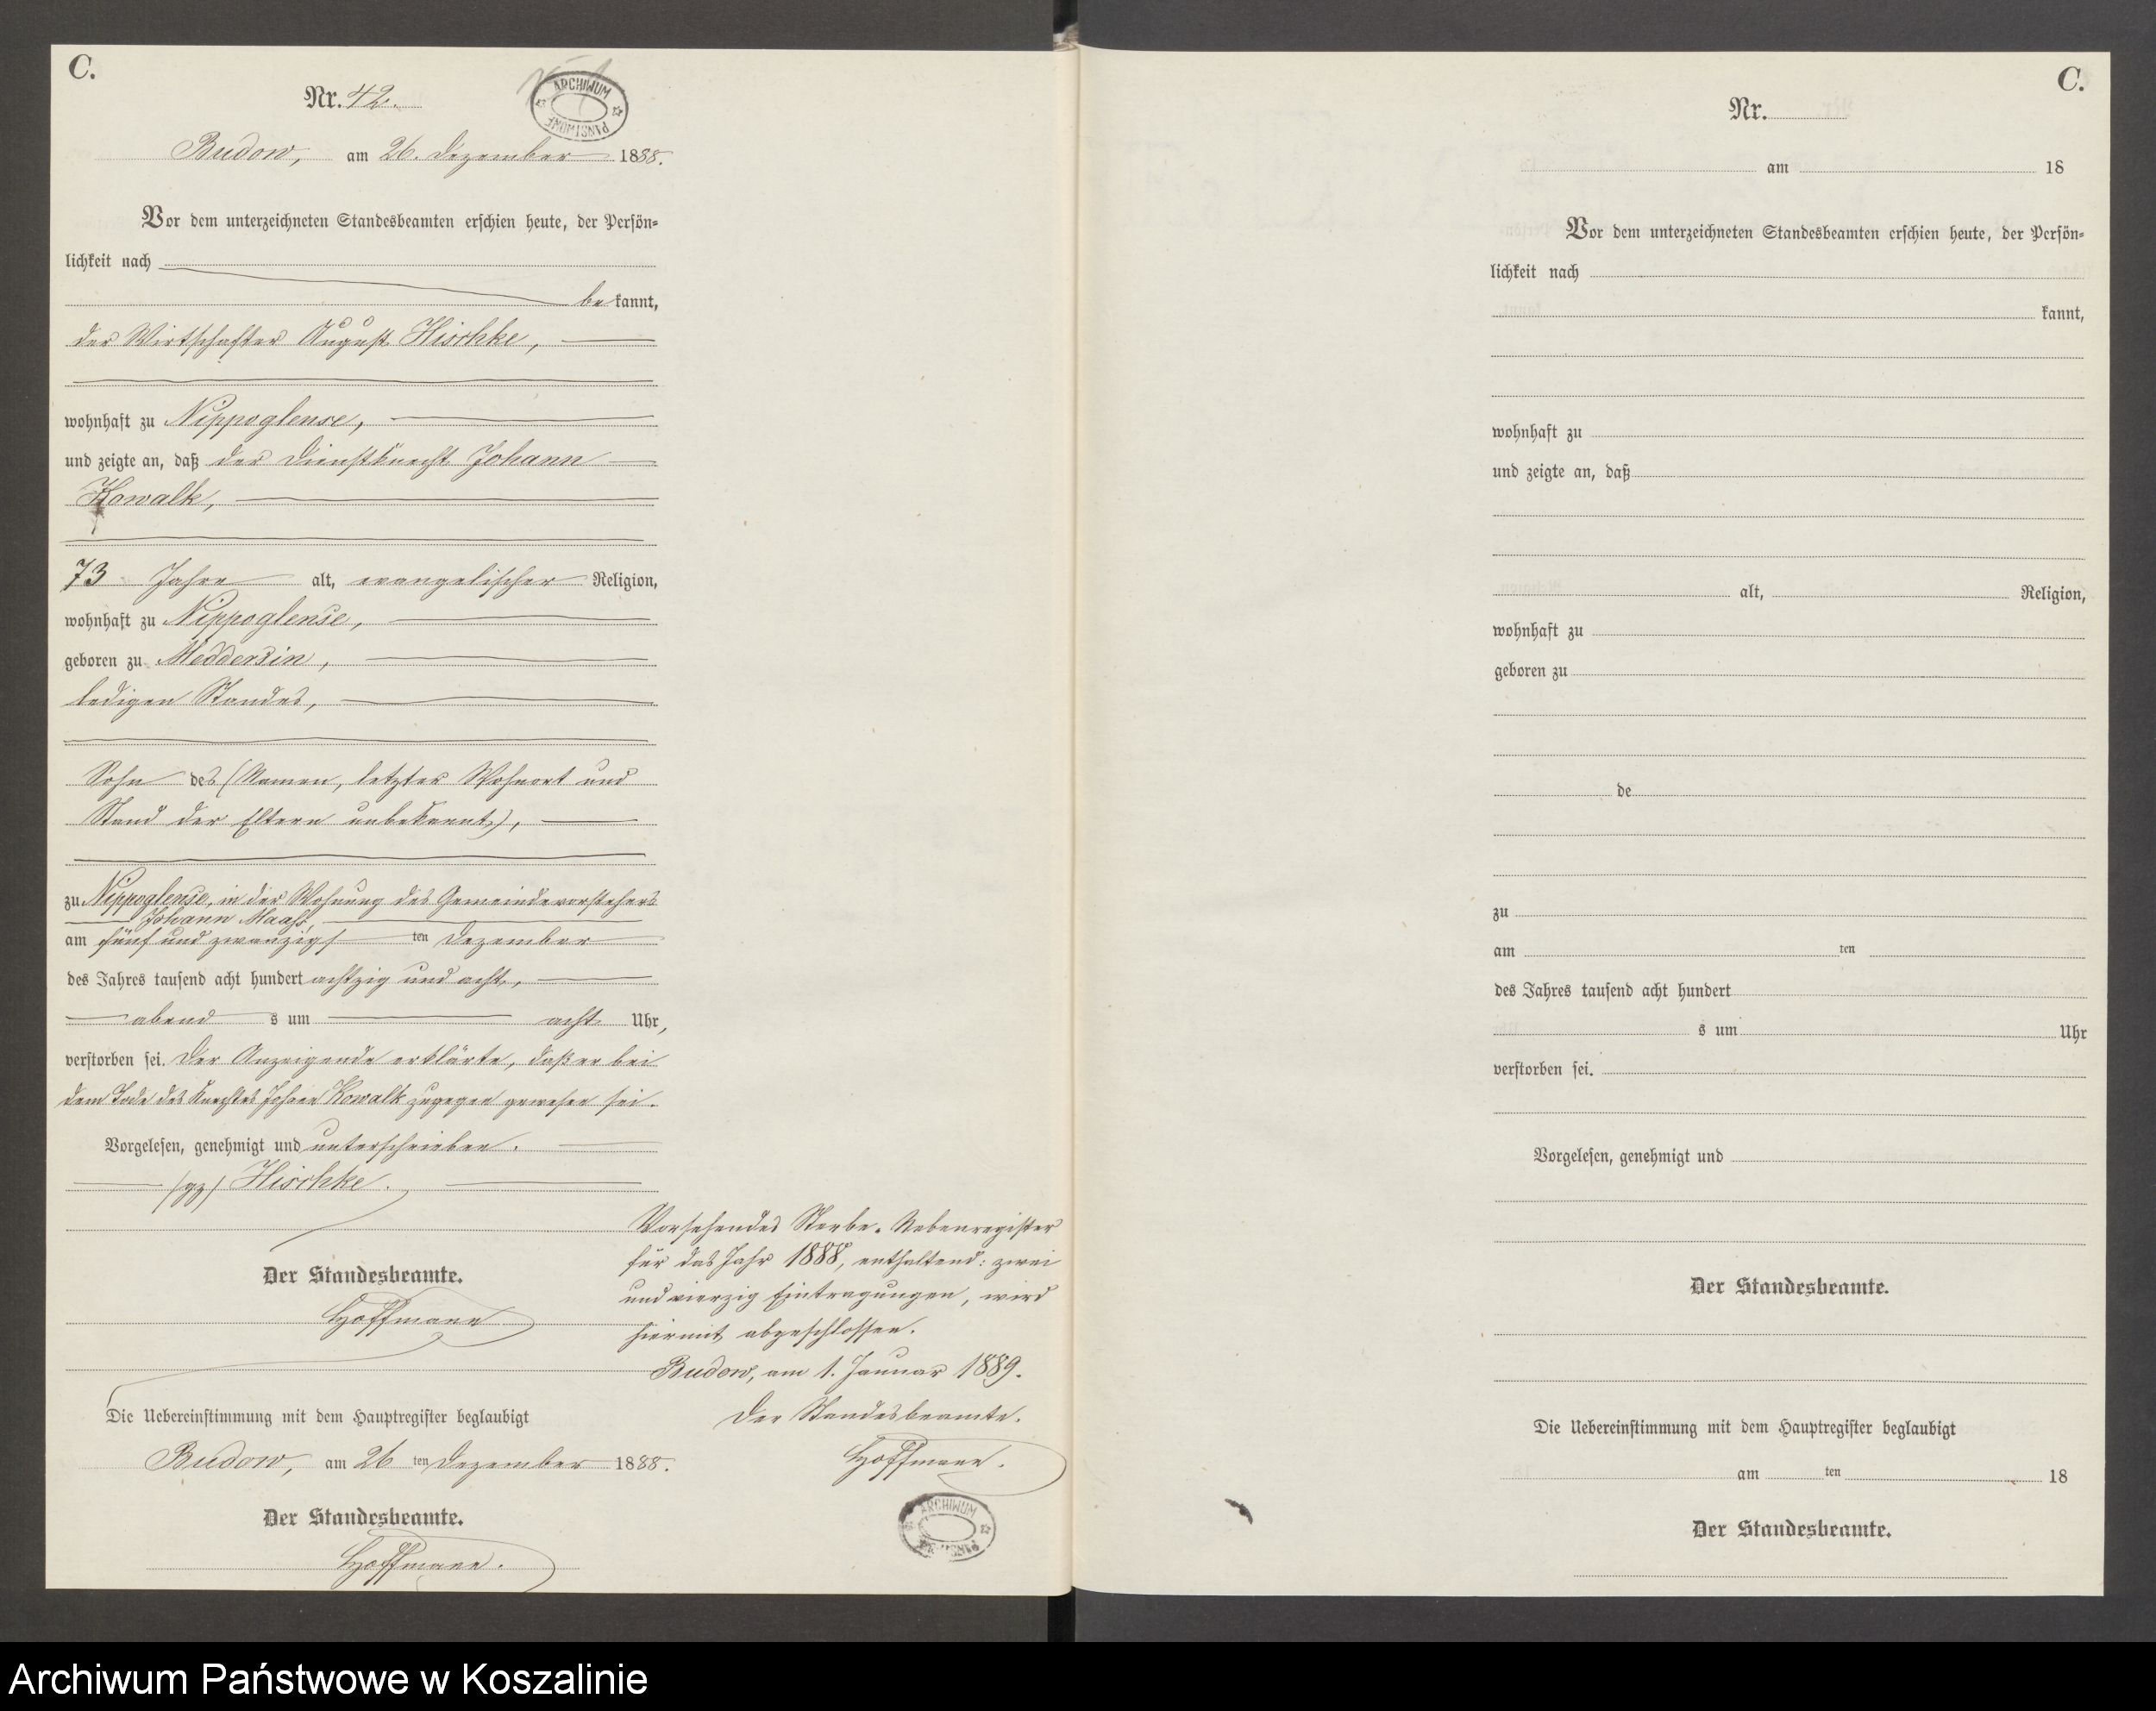 C.
Nr. 42.
ARCHIWUM PAŃSTWOWE
Budow, am 26. Dezember 1888.
Vor dem unterzeichneten Standesbeamten erschien heute, der Persön-
lichkeit nach
be kannt,
der Wirtschafter August Hischke,
wohnhaft zu Nippoglense,
und zeigte an, daß der Dienstknecht Johann
Kowalk,
73 Jahre alt, evangelischer Religion,
wohnhaft zu Nippoglense,
geboren zu Meddersin,
ledigen Standes,
Sohn des (Namen, letzter Wohnort und
Stand der Eltern unbekannt),
zu Nippoglense, in der Wohnung des Gemeindevorstehers
Johann Maaß,
am fünf und zwanzigs ten Dezember
des Jahres tausend acht hundert achtzig und acht,
abend s um acht Uhr,
verstorben sei. Der Anzeigende erklärte, daß er bei
dem Tode des Knechtes Johann Kowalk zugegen gewesen sei.
Vorgelesen, genehmigt und unterschrieben.
(gz) Hischke.
Der Standesbeamte.
Hoffmann
Die Uebereinstimmung mit dem Hauptregister beglaubigt
Budow, am 26 ten Dezember 1888.
Der Standesbeamte.
Hoffmann.
Vorstehendes Sterbe-Nebenregister
für das Jahr 1888, enthaltend: zwei
und vierzig Eintragungen, wird
hiermit abgeschlossen.
Budow, am 1. Januar 1889.
Der Standesbeamte.
Hoffmann.
ARCHIWUM PAŃSTWOWE
C.
Nr.
am 18
Vor dem unterzeichneten Standesbeamten erschien heute, der Persön-
lichkeit nach
kannt,
wohnhaft zu
und zeigte an, daß
alt, Religion,
wohnhaft zu
geboren zu
de
zu
am ten
des Jahres tausend acht hundert
s um Uhr
verstorben sei.
Vorgelesen, genehmigt und
Der Standesbeamte.
Die Uebereinstimmung mit dem Hauptregister beglaubigt
am ten 18
Der Standesbeamte.
Archiwum Państwowe w Koszalinie